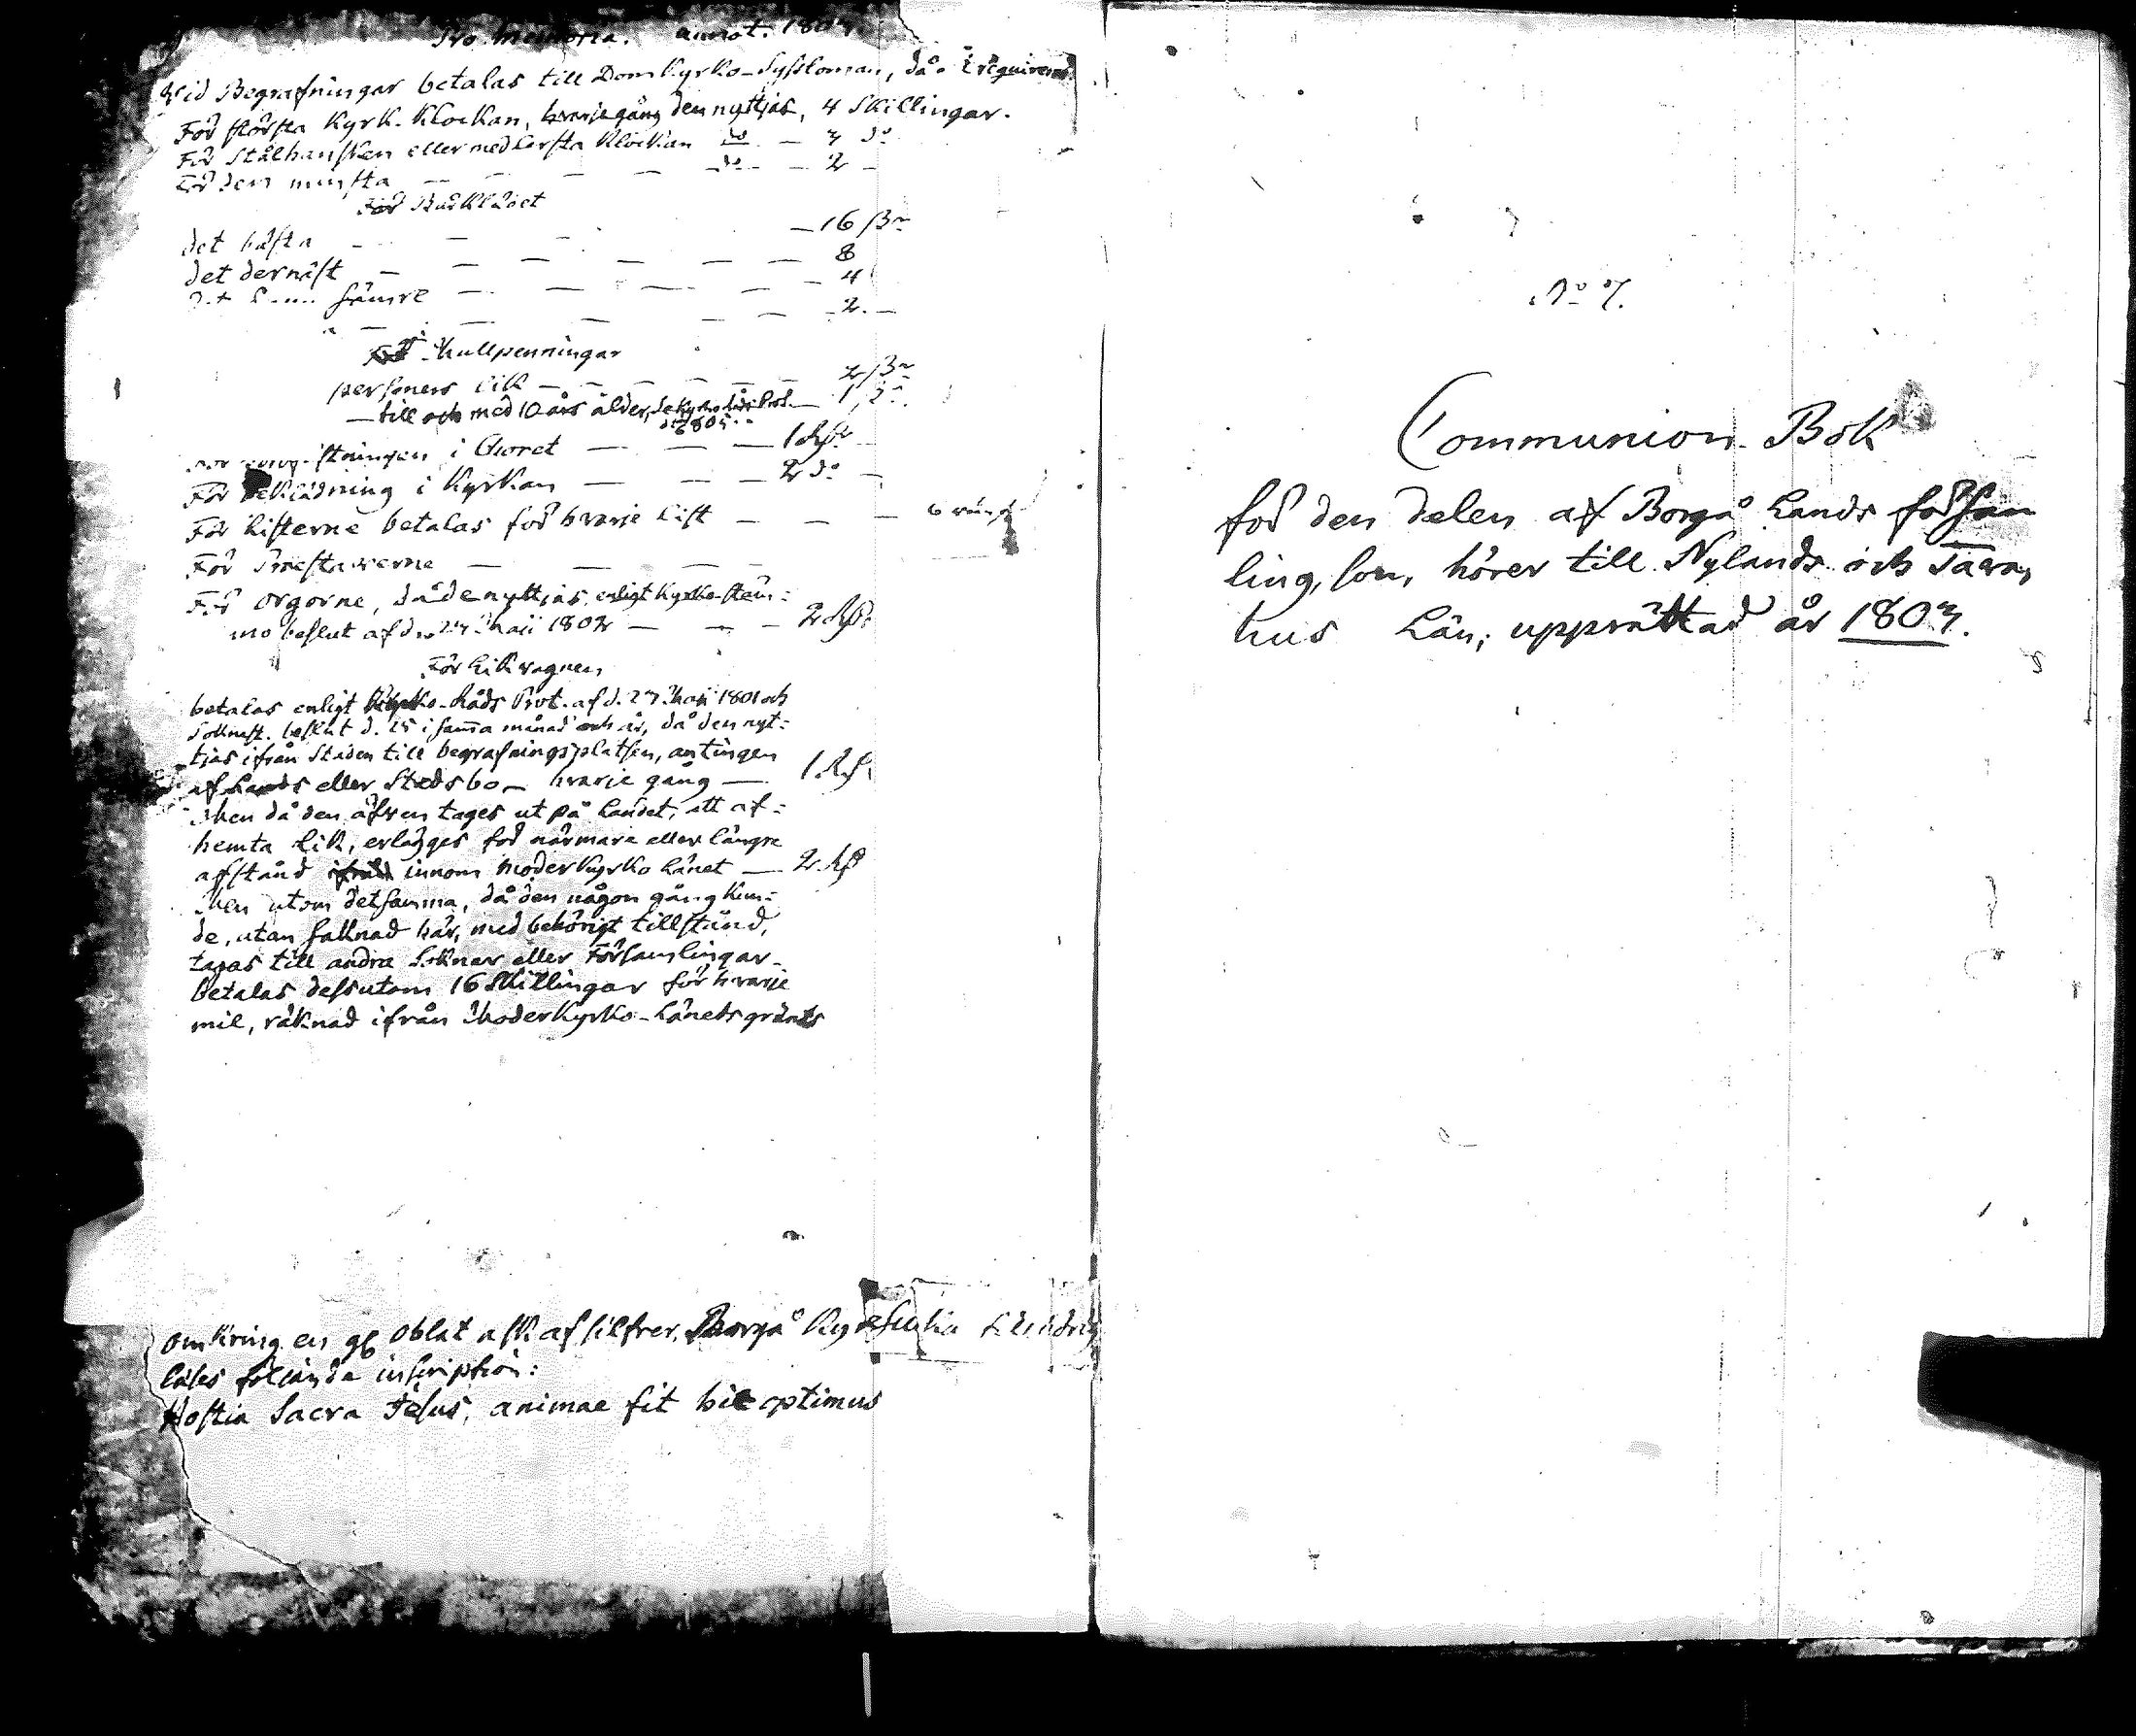 Pro Memoria. annot. 1803.
Wid Begrafningar betalas till Domkyrko-Sysloman, då requireras
För största Kyrk-Klockan, hvarje gång den nyttjas, 4 Skillingar.
För Stålhansken eller medlersta Klockan do — 3 do
För den minsta — — — — do — 2 —
För Bårklädet
det bästa — — — 16 ßr
det dernäst — — — — — — 8
sämre — — — — — 4
— — — — — 2. —
För Mullpenningar
personers lik — — — — — — 2 ßr
— till och med 10 års ålder, — 1 do.
i Choret — — — 1 Rdr
För beklädning i Kyrkan — — — 2 do —
För listerne betalas för hvarje list — — — 6
För — — —
För Orgorne, då de nyttjas, enligt Kyrko-stäm=
mo beslut af d. Maii 1802 — — — 2 Rdr
För Likvagnen
betalas enligt Kyrko-Råds Prot. af d. Maii 1801 och
Soknest. beslut d. 25 i samma månad och år, då den nyt=
tjas ifrån Staden till begrafningsplatsen, antingen
af Lands eller Stadsbo — hvarje gång — 1 Rdr
Men då den äfven tages ut på Landet, att af=
hemta Lik, erlägges för närmare eller längre
afstånd innom Moderkyrko Länet — 2 Rdr
Men utom detsamma, då den någon gång kun=
de, utan saknad här, med behörigt tillstånd,
tagas till andra Soknar eller Församlingar
betalas dessutom 16 Skillingar för hvarje
mil, räknad ifrån Moderkyrko-Länets gränts
Omkring en Oblat ask af silfver, Borgå
läses följande inscription:
Hostia Sacra Jesus, animae fit hic optimus
No 7.
Communion-Bok
för den delen af Borgå Lands försam
ling, som hörer till Nylands och Tavast
hus Län; upprättad år 1803.